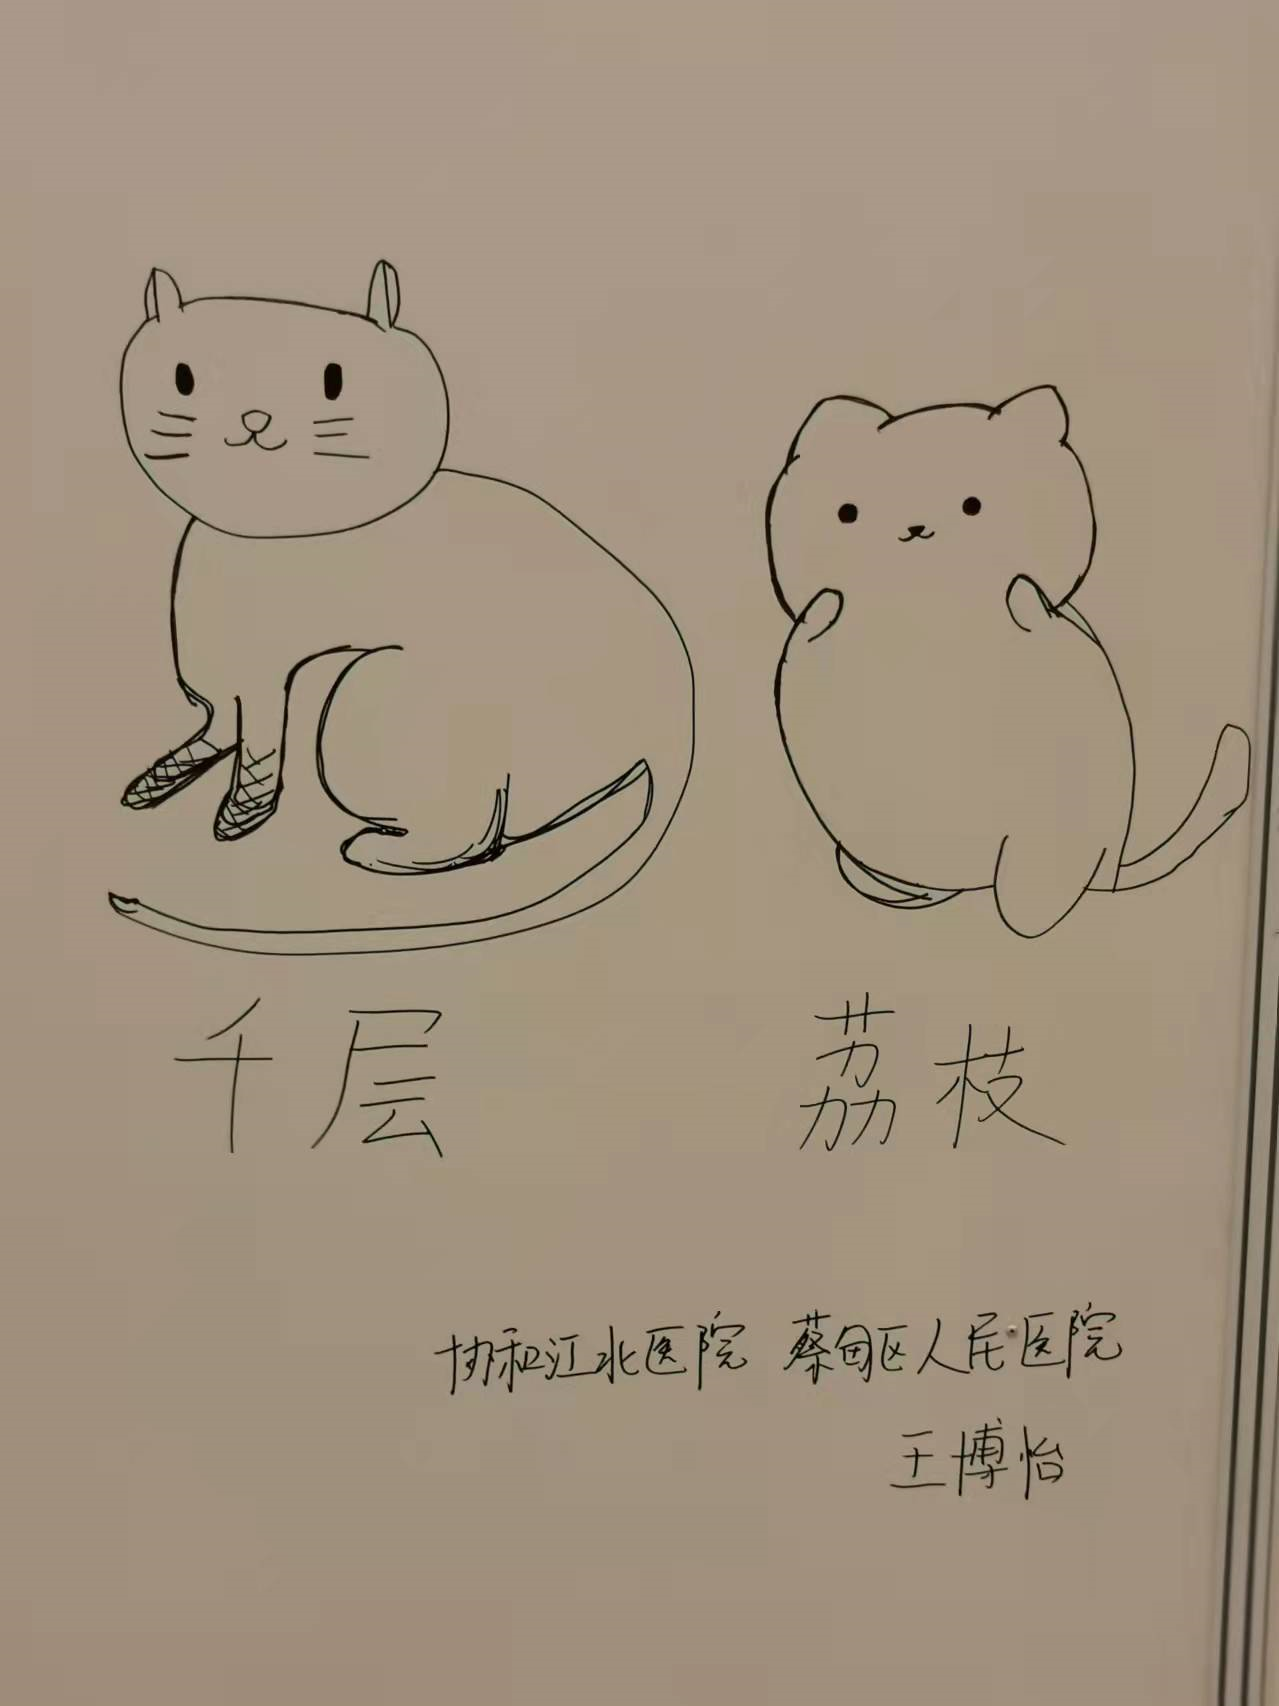 千层
荔枝
协和江北医院 蔡甸区人民医院
王博怡